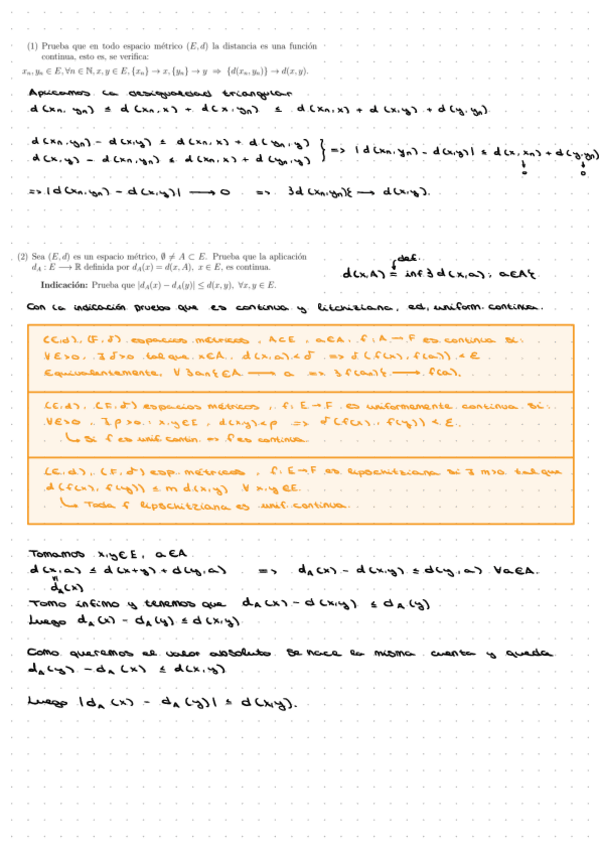 (1) Prueba que en todo espacio métrico (E, d) la distancia es una función
continua, esto es, se verifica:
xₙ, yₙ ∈ E, ∀n ∈ ℕ, x, y ∈ E, {xₙ} → x, {yₙ} → y ⇒ {d(xₙ, yₙ)} → d(x, y).
Aplicamos la desigualdad triangular
d(xₙ, yₙ) ≤ d(xₙ, x) + d(x, yₙ) ≤ d(xₙ, x) + d(x, y) + d(y, yₙ)
d(xₙ, yₙ) - d(x, y) ≤ d(xₙ, x) + d(yₙ, y)
d(x, y) - d(xₙ, yₙ) ≤ d(xₙ, x) + d(yₙ, y) } => |d(xₙ, yₙ) - d(x, y)| ≤ d(x, xₙ) + d(y, yₙ)
↓ 0 ↓ 0
=> |d(xₙ, yₙ) - d(x, y)| → 0 => {d(xₙ, yₙ)} → d(x, y).
(2) Sea (E, d) es un espacio métrico, ∅ ≠ A ⊂ E. Prueba que la aplicación
d_A : E → ℝ definida por d_A(x) = d(x, A), x ∈ E, es continua.
def.
d(x, A) = inf { d(x, a) : a ∈ A }
Indicación: Prueba que |d_A(x) − d_A(y)| ≤ d(x, y), ∀x, y ∈ E.
Con la indicación pruebo que es continua y litchiziana, ed, uniform. continua.
(E, d), (F, δ) espacios métricos, A ⊂ E, a ∈ A. f: A → F es continua si:
∀ε>0, ∃ δ>0 tal que, x ∈ A, d(x, a) < δ => δ(f(x), f(a)) < ε
Equivalentemente, ∀ {aₙ} ∈ A → a => {f(aₙ)} → f(a).
(E, d), (F, δ) espacios métricos, f: E → F es uniformemente continua si:
∀ε>0, ∃ρ>0: x, y ∈ E, d(x, y) < ρ => δ(f(x), f(y)) < ε.
↳ Si f es unif. contin => f es continua
(E, d), (F, δ) esp. métricos, f: E → F es lipochitziana si ∃ m>0 tal que
d(f(x), f(y)) ≤ m d(x, y) ∀ x, y ∈ E.
↳ Toda f lipochitziana es unif. continua.
Tomamos x, y ∈ E, a ∈ A
d(x, a) ≤ d(x+y) + d(y, a) => d_A(x) - d(x, y) ≤ d(y, a) ∀a ∈ A.
d_A(x)
Tomo ínfimo y tenemos que d_A(x) - d(x, y) ≤ d_A(y)
Luego d_A(x) - d_A(y) ≤ d(x, y)
Como queremos el valor absoluto. Se hace la misma cuenta y queda
d_A(y) - d_A(x) ≤ d(x, y)
Luego |d_A(x) - d_A(y)| ≤ d(x, y).